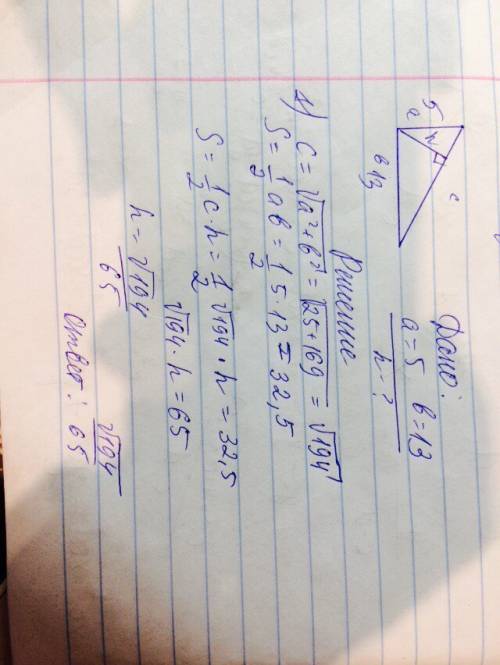 Дано:
a=5 b=13
h-?
5
a
h
c
b 13
Решение
1) c=√a²+b²=√25+169=√194
S=1/2 ab=1/2 5·13=32,5
S=1/2 c·h=1/2 √194·h=32,5
√194·h=65
h=√194/65
Ответ: √194/65